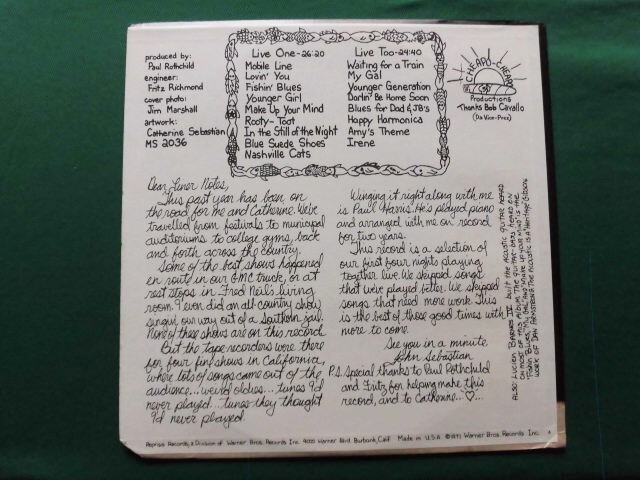 produced by:
Paul Rothchild
engineer:
Fritz Richmond
cover photo:
Jim Marshall
artwork:
Catherine Sebastian
MS 2036
Live One-26:20
Mobile Line
Lovin' You
Fishin' Blues
Younger Girl
Make Up Your Mind
Rooty-Toot
In the Still of the Night
Blue Suede Shoes
Nashville Cats
Live Too-24:40
Waiting for a Train
My Gal
Younger Generation
Darlin' Be Home Soon
Blues for Dad & JB's
Happy Harmonica
Amy's Theme
Irene
CHEAPO-CHEAPO
Productions
Thanks Bob Cavallo
(Da Vice-Prez)
Dear Liner Notes,
This past year has been on
the road for me and Catherine. We've
travelled from festivals to municipal
auditoriums to college gyms, back
and forth across the country.
Some of the best shows happened
en route in our GMC truck, or at
rest stops in Fred Neil's living
room. I even did an all-country show
singin' our way out of a Southern jail.
None of these shows are on this record.
But the tape recorders were there
for four fine shows in California,
where lots of songs came out of the
audience...weird oldies...tunes I'd
never played...tunes they thought
I'd never played.
Winging it right along with me
is Paul Harris. He's played piano
and arranged with me on record
for two years.
This record is a selection of
our first four nights playing
together live. We skipped songs
that were played better. We skipped
songs that need more work. This
is the best of those good times with
more to come.
See you in a minute,
John Sebastian
P.S. Special thanks to Paul Rothchild
and Fritz for helping make this
record, and to Catherine...♡...
ALSO: LUCIEN BARNES IV built the ACOUSTIC guitar HEARD
ON MOST OF THIS ALBUM. THE GUITAR BASS HEARD ON
"FISHIN' BLUES," MY GAL, AND MAKE UP YOUR MIND IS THE
WORK OF DAN ARMSTRONG. THE ACOUSTIC IS A HERITAGE GIBSON.
Reprise Records, a Division of Warner Bros. Records Inc. 4000 Warner Blvd. Burbank, Calif. Made in U.S.A. ©1971 Warner Bros. Records Inc.